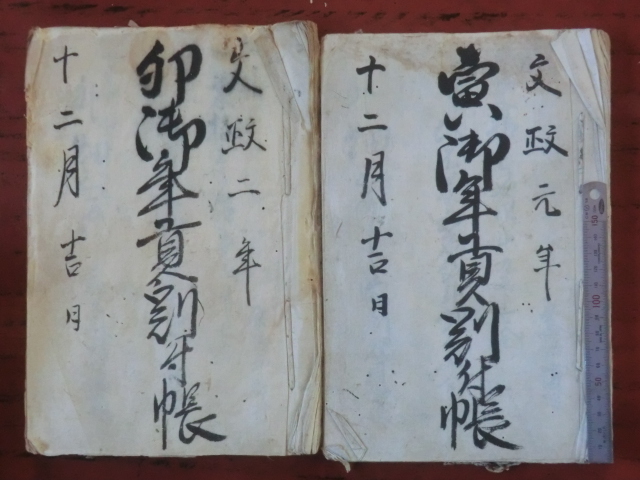 文政元年
寅御年貢割付帳
十二月吉日
文政二年
卯御年貢割付帳
十二月吉日